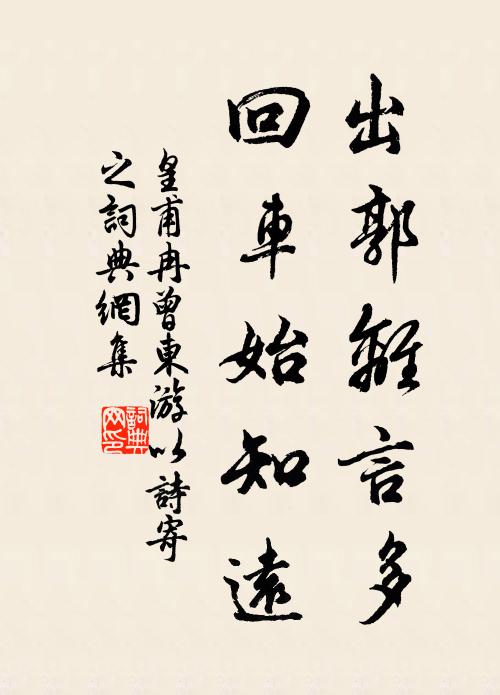 出郭離言多
回車始知遠
皇甫冉曾東游以詩寄
之詞典網集
詞典
网印